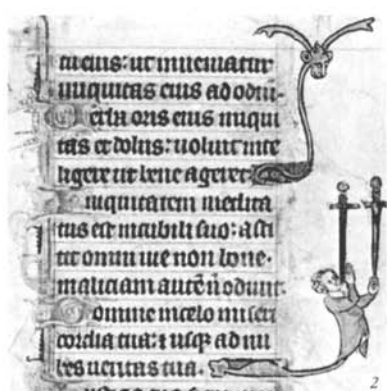 tu eius: ut inueniatur
iniquitas eius ad odiu-
Uerba oris eius iniqui
tas et dolus: noluit inte
ligere ut bene ageret.
Iniquitatem medita
tus est in cubili suo: asti
tit omni uie non bone.
maliciam autē ñ odiuit.
Domine in celo miseri
cordia tua: et usq; ad nu
bes ueritas tua.
2